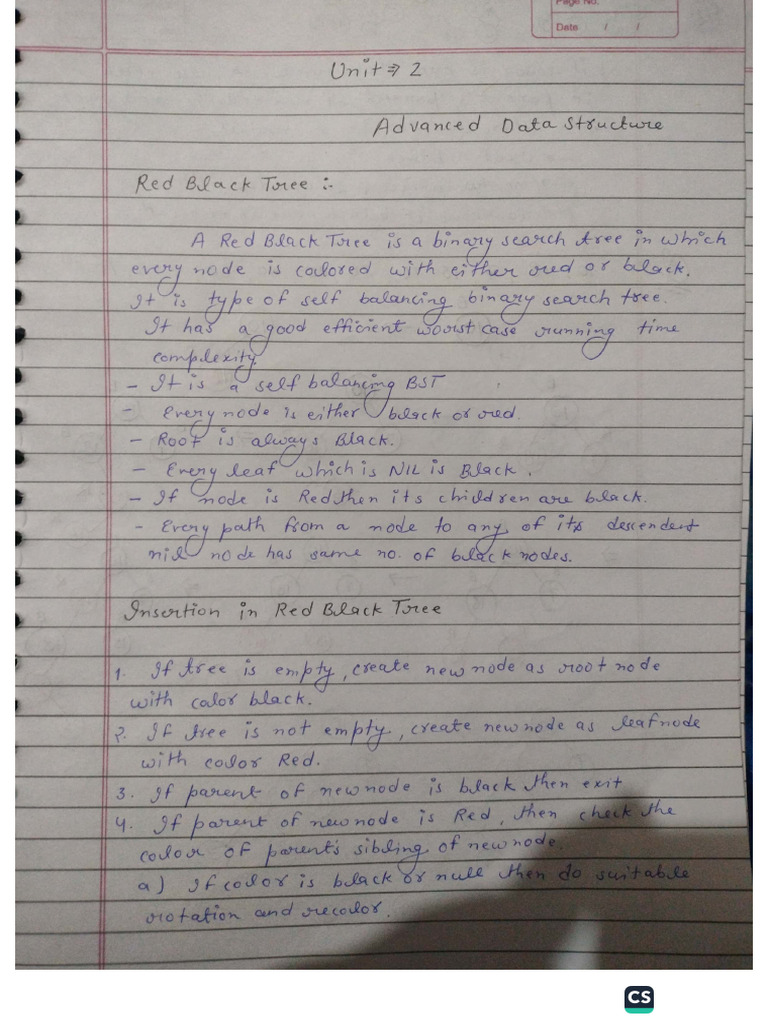 Page No.
Date / /
Unit ⇒ 2
Advanced Data Structure
Red Black Tree :-
A Red Black Tree is a binary search tree in which
every node is colored with either red or black.
It is type of self balancing binary search tree.
It has a good efficient worst case running time
complexity.
- It is a self balancing BST
- Every node is either black or red.
- Root is always Black.
- Every leaf which is NIL is Black.
- If node is Red then its children are black.
- Every path from a node to any of its descendent
nil node has same no. of black nodes.
Insertion in Red Black Tree
1. If tree is empty, create new node as root node
with color black.
2. If tree is not empty, create new node as leaf node
with color Red.
3. If parent of new node is black then exit
4. If parent of new node is Red, then check the
colour of parent's sibling of new node.
a) If color is black or null then do suitable
rotation and recolor.
CS